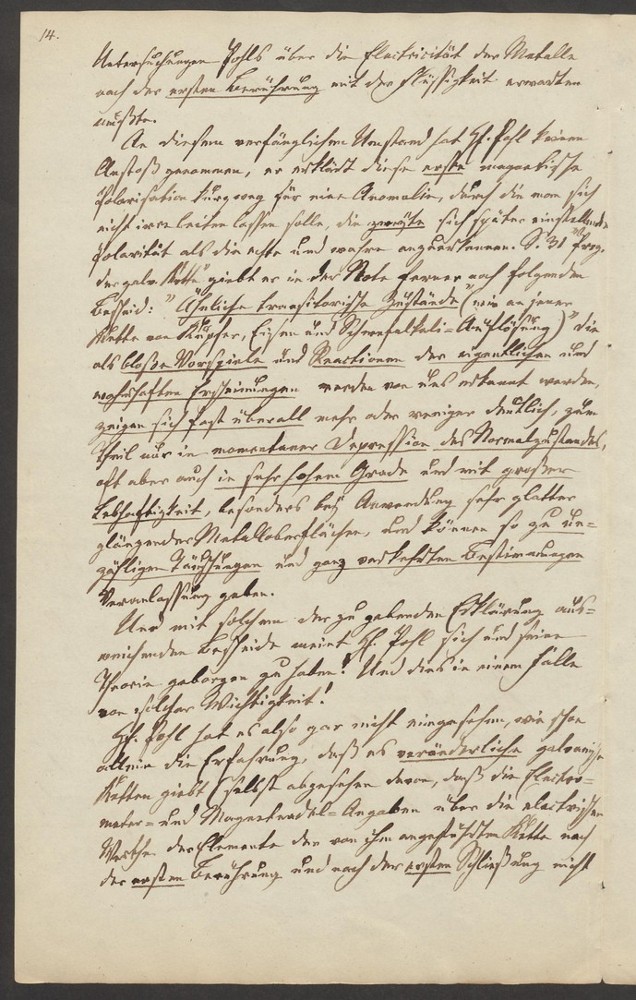 14.
Untersuchungen Pohls über die Elektricität der Metalle
nach der ersten Berührung mit der Flüssigkeit erwarten
müßte.
An diesem verfänglichen Umstand hat H. Pohl keinen
Anstoß genommen, er erklärt diese erste magnetische
Polarisation kurzweg für eine Anomalie, durch die man sich
nicht irre leiten lassen solle, die zweite sich später einstellende
Polarität als die ächte und wahre anzuerkennen. S. 31 "Proz.
der galv. Kette" giebt er in der Note ferner noch folgenden
Bescheid: "Ähnliche transitorische Zustände" (wie an jener
Kette von Kupfer, Eisen und Schwefelkali-Auflösung) "die
als bloße Vorspiele und Reactionen der eigentlichen und
wahrhaften Erscheinungen werden von uns erkannt werden,
zeigen sich fast überall mehr oder weniger deutlich, zum
Theil nur in momentaner Depression des Normalzustandes,
oft aber auch in sehr hohem Grade und mit großer
Lebhaftigkeit, besonders bey Anwendung sehr glatter
glänzender Metalloberflächen, und können so zu un=
zähligen Täuschungen und ganz verkehrten Bestimmungen
Veranlassung geben.
Und mit solchem der zu gebenden Erklärung aus=
weichenden Bescheide meint H. Pohl sich und seine
Theorie geborgen zu haben! Und dies in einem Falle
von solcher Wichtigkeit!
H. Pohl hat es also gar nicht eingesehen, wie schon
allein die Erfahrung, daß es veränderliche galvanische
Ketten giebt (selbst abgesehen davon, daß die Electro=
meter= und Magnetnadel=Angaben über die electrischen
Werthe der Elemente der von ihm angeführten Kette nach
der ersten Berührung und nach der ersten Schließung nicht